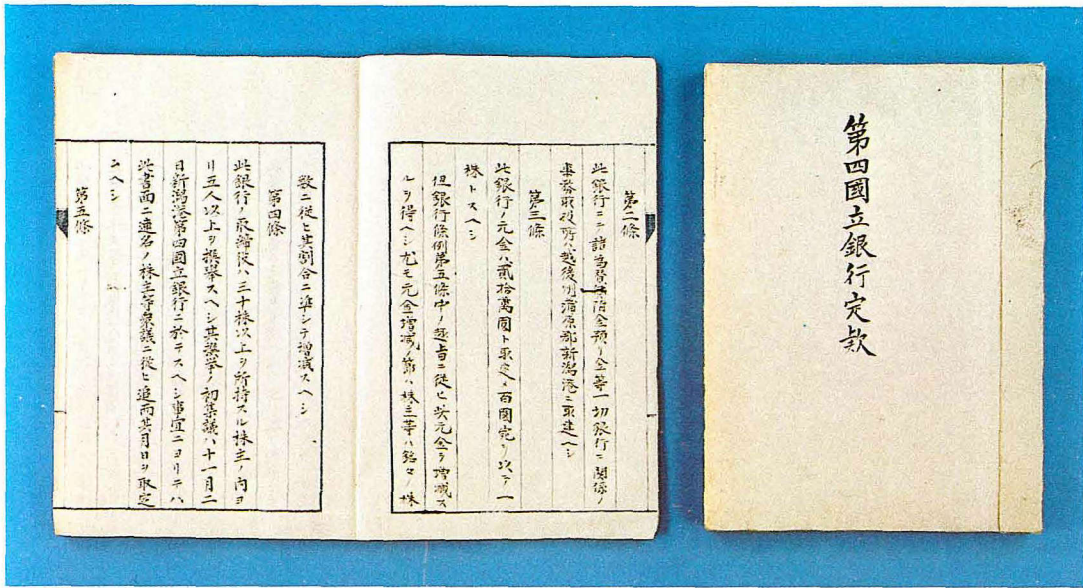 第四國立銀行定款
第二條
此銀行ニテ諸為替貸附金預リ金等一切銀行ニ関係ノ
事務取扱所ハ越後州蒲原郡新潟港ニ取建ヘシ
第三條
此銀行ノ元金ハ貳拾萬圓ト取定メ百圓宛ヲ以テ一
株トスヘシ
但銀行條例第五條中ノ趣旨ニ従ヒ元金ヲ増減ス
ルヲ得ヘシ尤モ元金増減ノ節ハ株主等ハ銘々ノ株
数ニ従ヒ其割合ニ準シテ増減スヘシ
第四條
此銀行ノ取締役ハ三十株以上ヲ所持スル株主ノ内ヨ
リ五人以上ヲ撰挙スヘシ其撰挙ノ初集議ハ十一月二
日新潟港第四國立銀行ニ於テスヘシ事宜ニヨリテハ
此書面ニ連名ノ株主等衆議ニ従ヒ追而其月日ヲ取定
ムヘシ
第五條